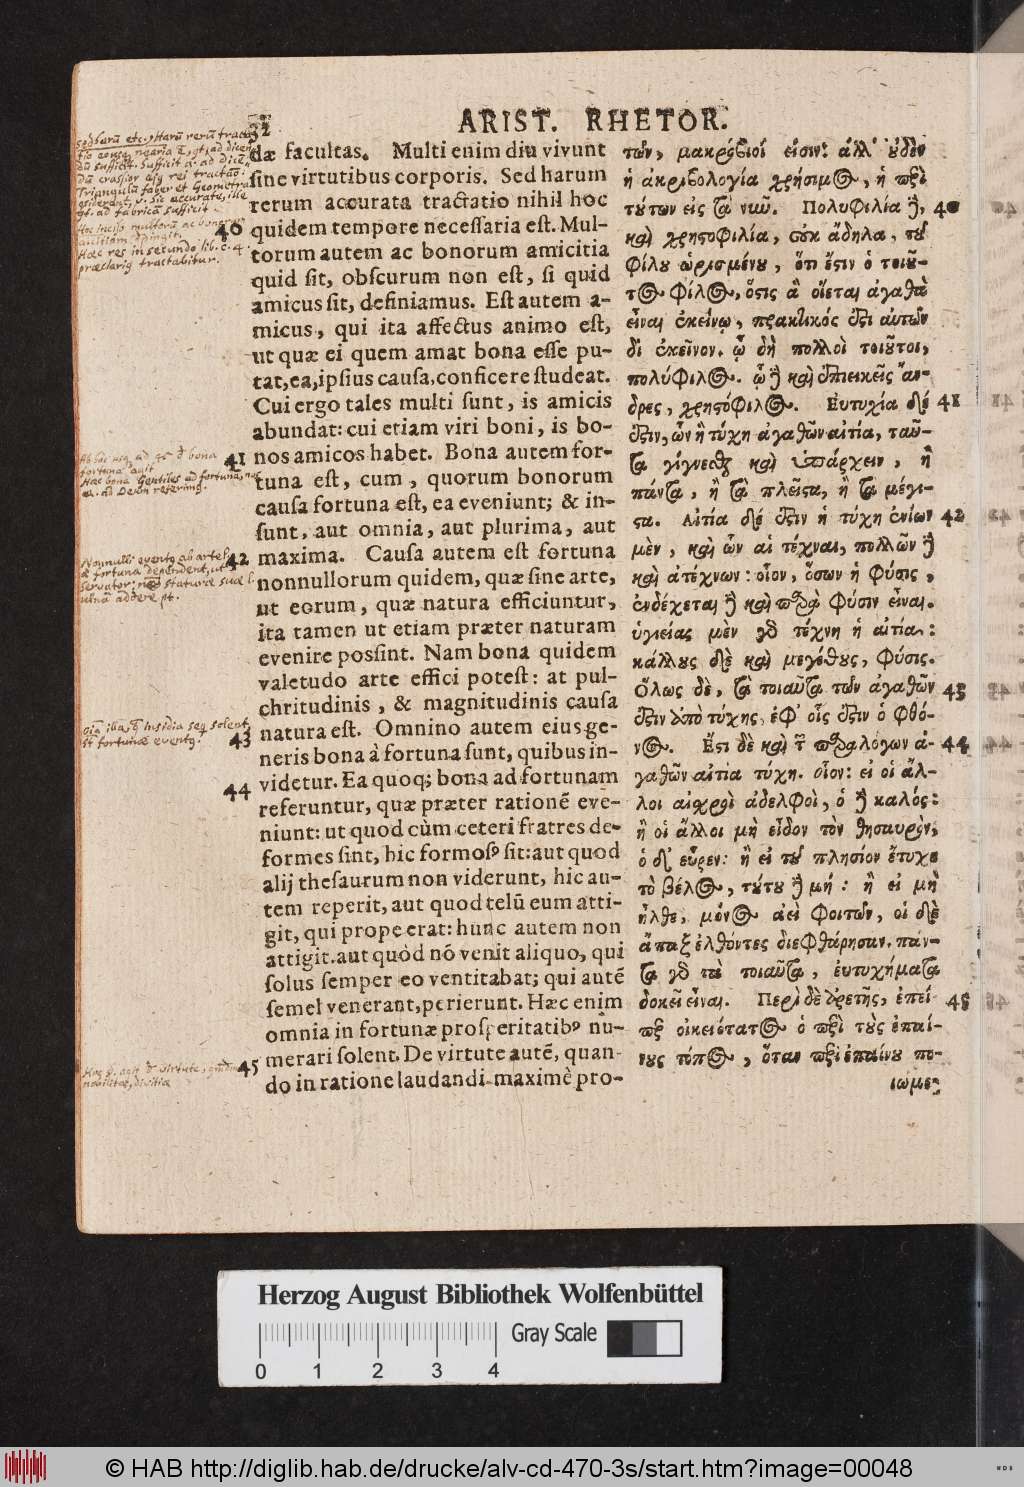 32
ARIST. RHETOR.
dæ facultas. Multi enim diu vivunt
sine virtutibus corporis. Sed harum
rerum accurata tractatio nihil hoc
40 quidem tempore necessaria est. Mul-
torum autem ac bonorum amicitia
quid sit, obscurum non est, si quid
amicus sit, definiamus. Est autem a-
micus, qui ita affectus animo est,
ut quæ ei quem amat bona esse pu-
tat, ea, ipsius causa, conficere studeat.
Cui ergo tales multi sunt, is amicis
abundat: cui etiam viri boni, is bo-
41 nos amicos habet. Bona autem for-
tuna est, cum, quorum bonorum
causa fortuna est, ea eveniunt; & in-
sunt, aut omnia, aut plurima, aut
42 maxima. Causa autem est fortuna
nonnullorum quidem, quæ sine arte,
ut eorum, quæ natura efficiuntur,
ita tamen ut etiam præter naturam
evenire possint. Nam bona quidem
valetudo arte effici potest: at pul-
chritudinis, & magnitudinis causa
43 natura est. Omnino autem eius ge-
neris bona à fortuna sunt, quibus in-
44 videtur. Ea quoq; bona ad fortunam
referuntur, quæ præter rationē eve-
niunt: ut quod cùm ceteri fratres de-
formes sint, hic formosꝰ sit: aut quod
alij thesaurum non viderunt, hic au-
tem reperit, aut quod telū eum atti-
git, qui prope erat: hunc autem non
attigit. aut quòd nō venit aliquo, qui
solus semper eo ventitabat; qui autē
semel venerant, perierunt. Hæc enim
omnia in fortunæ prosperitatibꝰ nu-
45 merari solent. De virtute autē, quan-
do in ratione laudandi maximè pro-
των, μακρόβιοί εἰσιν: ἀλλ' οὐδὲν
ἡ ἀκριβολογία χρήσιμος, ἡ περὶ
τούτων εἰς τὰ νῦν. Πολυφιλία δὲ, 40
καὶ χρηστοφιλία, οὐκ ἄδηλα, τοῦ
φίλου ὡρισμένου, ὅτι ἔστιν ὁ τοιοῦ-
τος φίλος, ὅστις ἃ οἴεται ἀγαθὰ
εἶναι ἐκείνῳ, πρακτικός ἐστι αὐτῶν
δι' ἐκεῖνον. ᾧ δὴ πολλοὶ τοιοῦτοι,
πολύφιλος. ᾧ δὲ καὶ ἐπιεικεῖς ἄν-
δρες, χρηστόφιλος. Εὐτυχία δέ 41
ἐστιν, ὧν ἡ τύχη ἀγαθῶν αἰτία, ταῦ-
τα γίγνεσθαι καὶ ὑπάρχειν, ἢ
πάντα, ἢ τὰ πλεῖστα, ἢ τὰ μέγι-
στα. Αἰτία δέ ἐστιν ἡ τύχη ἐνίων 42
μὲν, καὶ ὧν αἱ τέχναι, πολλῶν δὲ
καὶ ἀτέχνων: οἷον, ὅσων ἡ φύσις,
ἐνδέχεται δὲ καὶ παρὰ φύσιν εἶναι.
ὑγιείας μὲν γὰρ τέχνη ἡ αἰτία:
κάλλους δὲ καὶ μεγέθους, φύσις.
Ὅλως δὲ, τὰ τοιαῦτα τῶν ἀγαθῶν 43
ἐστιν ἀπὸ τύχης, ἐφ' οἷς ἐστιν ὁ φθό-
νος. Ἔστι δὲ καὶ τῶν παραλόγων ἀ- 44
γαθῶν αἰτία τύχη. οἷον: εἰ οἱ ἄλ-
λοι αἰσχροὶ ἀδελφοὶ, ὁ δὲ καλός:
ἢ οἱ ἄλλοι μὴ εἶδον τὸν θησαυρὸν,
ὁ δ' εὗρεν: ἢ εἰ τοῦ πλησίον ἔτυχε
τὸ βέλος, τούτου δὲ μή: ἢ εἰ μὴ
ἦλθε, μόνος ἀεὶ φοιτῶν, οἱ δὲ
ἅπαξ ἐλθόντες διεφθάρησαν. πάν-
τα γὰρ τὰ τοιαῦτα, εὐτυχήματα
δοκεῖ εἶναι. Περὶ δὲ ἀρετῆς, ἐπεί- 45
περ οἰκειότατος ὁ περὶ τοὺς ἐπαί-
νους τόπος, ὅταν περὶ ἐπαίνου πο-
ιώμε-
Herzog August Bibliothek Wolfenbüttel
Gray Scale
0 1 2 3 4
© HAB http://diglib.hab.de/drucke/alv-cd-470-3s/start.htm?image=00048